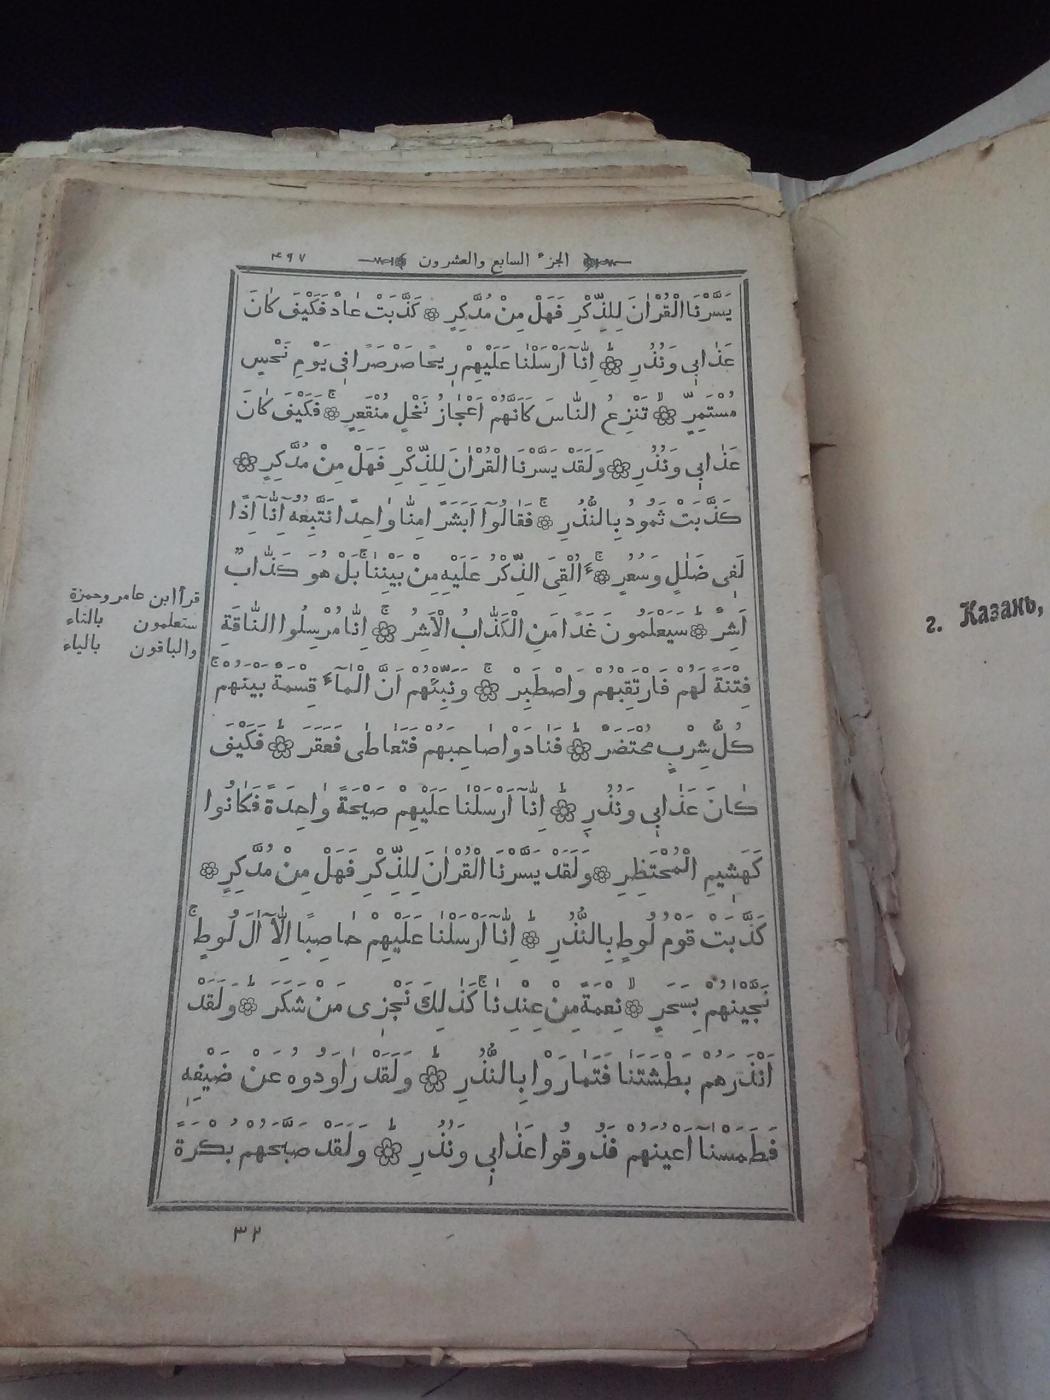 الجزء السابع والعشرون
٤٩٧
يَسَّرْنَا الْقُرْاٰنَ لِلذِّكْرِ فَهَلْ مِنْ مُدَّكِرٍ ۞ كَذَّبَتْ عٰادٌ فَكَيْفَ كٰانَ
عَذٰابٖى وَنُذُرِ ۞ اِنّٰٓا اَرْسَلْنٰا عَلَيْهِمْ رٖيحًا صَرْصَرًا فٖى يَوْمِ نَحْسٍ
مُسْتَمِرٍّ ۞ تَنْزِعُ النّٰاسَ كَاَنَّهُمْ اَعْجٰازُ نَخْلٍ مُنْقَعِرٍ ۞ فَكَيْفَ كٰانَ
عَذٰابٖى وَنُذُرِ ۞ وَلَقَدْ يَسَّرْنَا الْقُرْاٰنَ لِلذِّكْرِ فَهَلْ مِنْ مُدَّكِرٍ ۞
كَذَّبَتْ ثَمُودُ بِالنُّذُرِ ۞ فَقٰالُوٓا اَبَشَرًا مِنّٰا وٰاحِدًا نَتَّبِعُهُٓ اِنّٰٓا اِذًا
لَفٖى ضَلٰلٍ وَسُعُرٍ ۞ ءَاُلْقِىَ الذِّكْرُ عَلَيْهِ مِنْ بَيْنِنٰا بَلْ هُوَ كَذّٰابٌ
اَشِرٌ ۞ سَيَعْلَمُونَ غَدًا مَنِ الْكَذّٰابُ الْاَشِرُ ۞ اِنّٰا مُرْسِلُوا النّٰاقَةِ
فِتْنَةً لَهُمْ فَارْتَقِبْهُمْ وَاصْطَبِرْ ۞ وَنَبِّئْهُمْ اَنَّ الْمٰٓاءَ قِسْمَةٌ بَيْنَهُمْ
كُلُّ شِرْبٍ مُحْتَضَرٌ ۞ فَنٰادَوْا صٰاحِبَهُمْ فَتَعٰاطٰى فَعَقَرَ ۞ فَكَيْفَ
كٰانَ عَذٰابٖى وَنُذُرِ ۞ اِنّٰٓا اَرْسَلْنٰا عَلَيْهِمْ صَيْحَةً وٰاحِدَةً فَكٰانُوا
كَهَشٖيمِ الْمُحْتَظِرِ ۞ وَلَقَدْ يَسَّرْنَا الْقُرْاٰنَ لِلذِّكْرِ فَهَلْ مِنْ مُدَّكِرٍ ۞
كَذَّبَتْ قَوْمُ لُوطٍ بِالنُّذُرِ ۞ اِنّٰٓا اَرْسَلْنٰا عَلَيْهِمْ حٰاصِبًا اِلّٰٓا اٰلَ لُوطٍ
نَجَّيْنٰهُمْ بِسَحَرٍ ۞ نِعْمَةً مِنْ عِنْدِنٰا كَذٰلِكَ نَجْزٖى مَنْ شَكَرَ ۞ وَلَقَدْ
اَنْذَرَهُمْ بَطْشَتَنٰا فَتَمٰارَوْا بِالنُّذُرِ ۞ وَلَقَدْ رٰاوَدُوهُ عَنْ ضَيْفِهٖ
فَطَمَسْنٰٓا اَعْيُنَهُمْ فَذُوقُوا عَذٰابٖى وَنُذُرِ ۞ وَلَقَدْ صَبَّحَهُمْ بُكْرَةً
قرأ ابن عامر وحمزة
ستعلمون بالتاء
والباقون بالياء
٣٢
г. Казань,